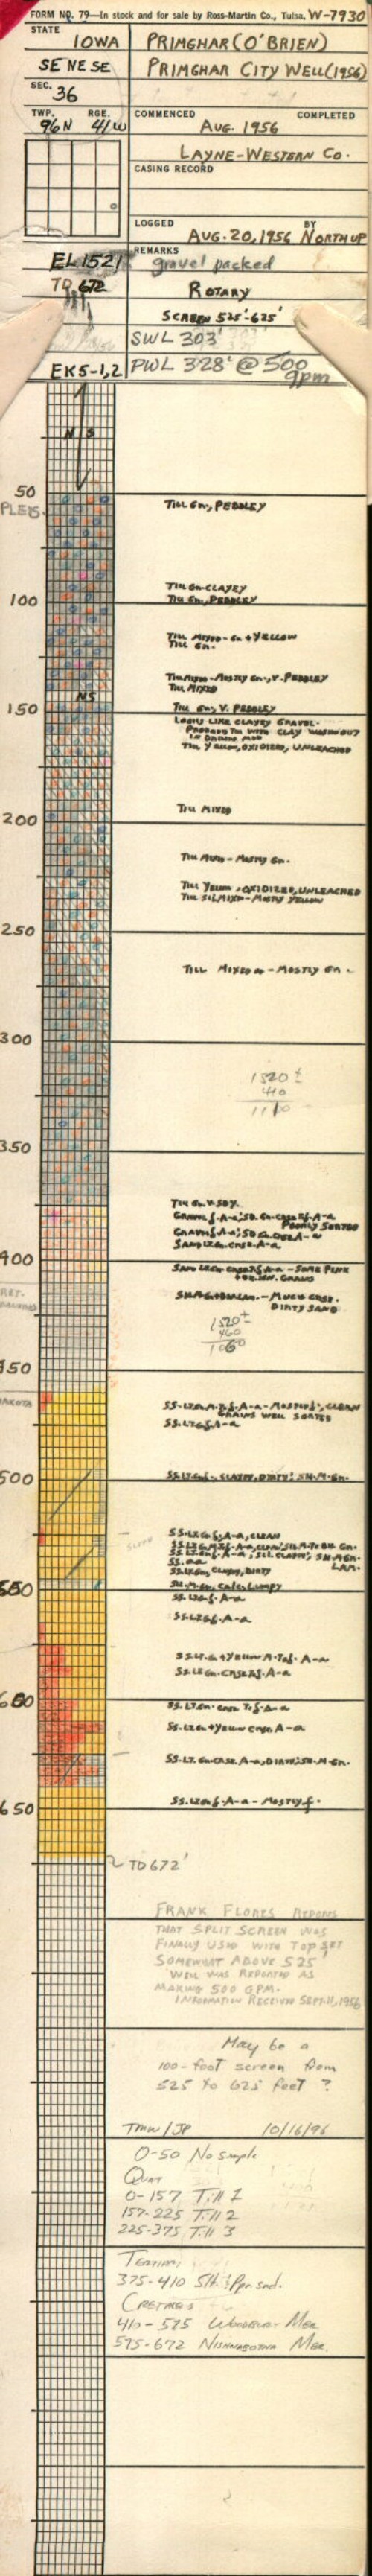 FORM NO. 79—In stock and for sale by Ross-Martin Co., Tulsa. W-7930
STATE IOWA
PRIMGHAR (O'BRIEN)
SE NE SE
PRIMGHAR CITY WELL (1956)
SEC. 36
TWP. 96N RGE. 41W
COMMENCED AUG. 1956 COMPLETED
LAYNE-WESTERN CO.
CASING RECORD
LOGGED AUG. 20, 1956 BY NORTHUP
EL 1521
REMARKS gravel packed
TD 672
ROTARY
SCREEN 525'-625'
SWL 303'
EKS-1,2
PWL 328' @ 500 gpm
NS
50
PLEIS.
TILL GN., PEBBLEY
TILL GN-CLAYEY
100
TILL GN., PEBBLEY
TILL MIXED-GN + YELLOW
TILL GN.
TILL MIXED-MOSTLY GN., V. PEBBLEY
TILL MIXED
NS
150
TILL GN., V. PEBBLEY
LOOKS LIKE CLAYEY GRAVEL.
PROBABLY TILL WITH CLAY WASHED OUT
IN DRILLING MUD
TILL YELLOW, OXIDIZED, UNLEACHED
TILL MIXED
200
TILL MIXED - MOSTLY GN.
TILL YELLOW, OXIDIZED, UNLEACHED
TILL MIXED-MOSTLY YELLOW
250
TILL MIXED - MOSTLY GN.
300
1520 ±
410
1110
350
TILL GN. V. SDY.
GRAVEL f. A-a; SD. GN-CRSE & f. A-a
POORLY SORTED
GRAVEL f. A-a; SD CRSE A-a
SAND LT GN. CRSE. A-a
400
SAND LT GN-CRSE & f. A-a - SOME PINK
DIRTY SAND
1520 ±
460
1060
450
DAKOTA
SS-LT GN. M. & f. A-a-MOSTLY f., CLEAN
GRAINS WELL SORTED
SS. LT G f. A-a
500
SS. LT GN f., CLAYEY, DIRTY; SH-M-GN.
SS-LT GN f. A-a, CLEAN
SS. aa
LAM.
550
SS. LT GN f. A-a
SS. LT G f. A-a
SS LT. G + YELLOW M. TO f. A-a
SS LT GN-CRSE & f. A-a
600
SS. LT GN-CRSE TO f. A-a
SS. LT GN + YELLOW CRSE. A-a
SS-LT. GN-CRSE. A-a, DIRTY; SH-M-GN.
650
SS. LT GN f. A-a - MOSTLY f.
TD 672'
FRANK FLORES REPORTS
THAT SPLIT SCREEN WAS
FINALLY USED WITH TOP SET
SOMEWHAT ABOVE 525'
WELL WAS REPORTED AS
MAKING 500 GPM.
INFORMATION RECEIVED SEPT. 11, 1956
May be a
100-foot screen from
525 to 625 feet ?
TMW/JP 10/16/96
0-50 No sample
QUAT
0-157 Till 1
157-225 Till 2
225-375 Till 3
TERTIARY
375-410
CRETACEOUS
410-575 WOODBURY MBR.
575-672 NISHNABOTNA MBR.